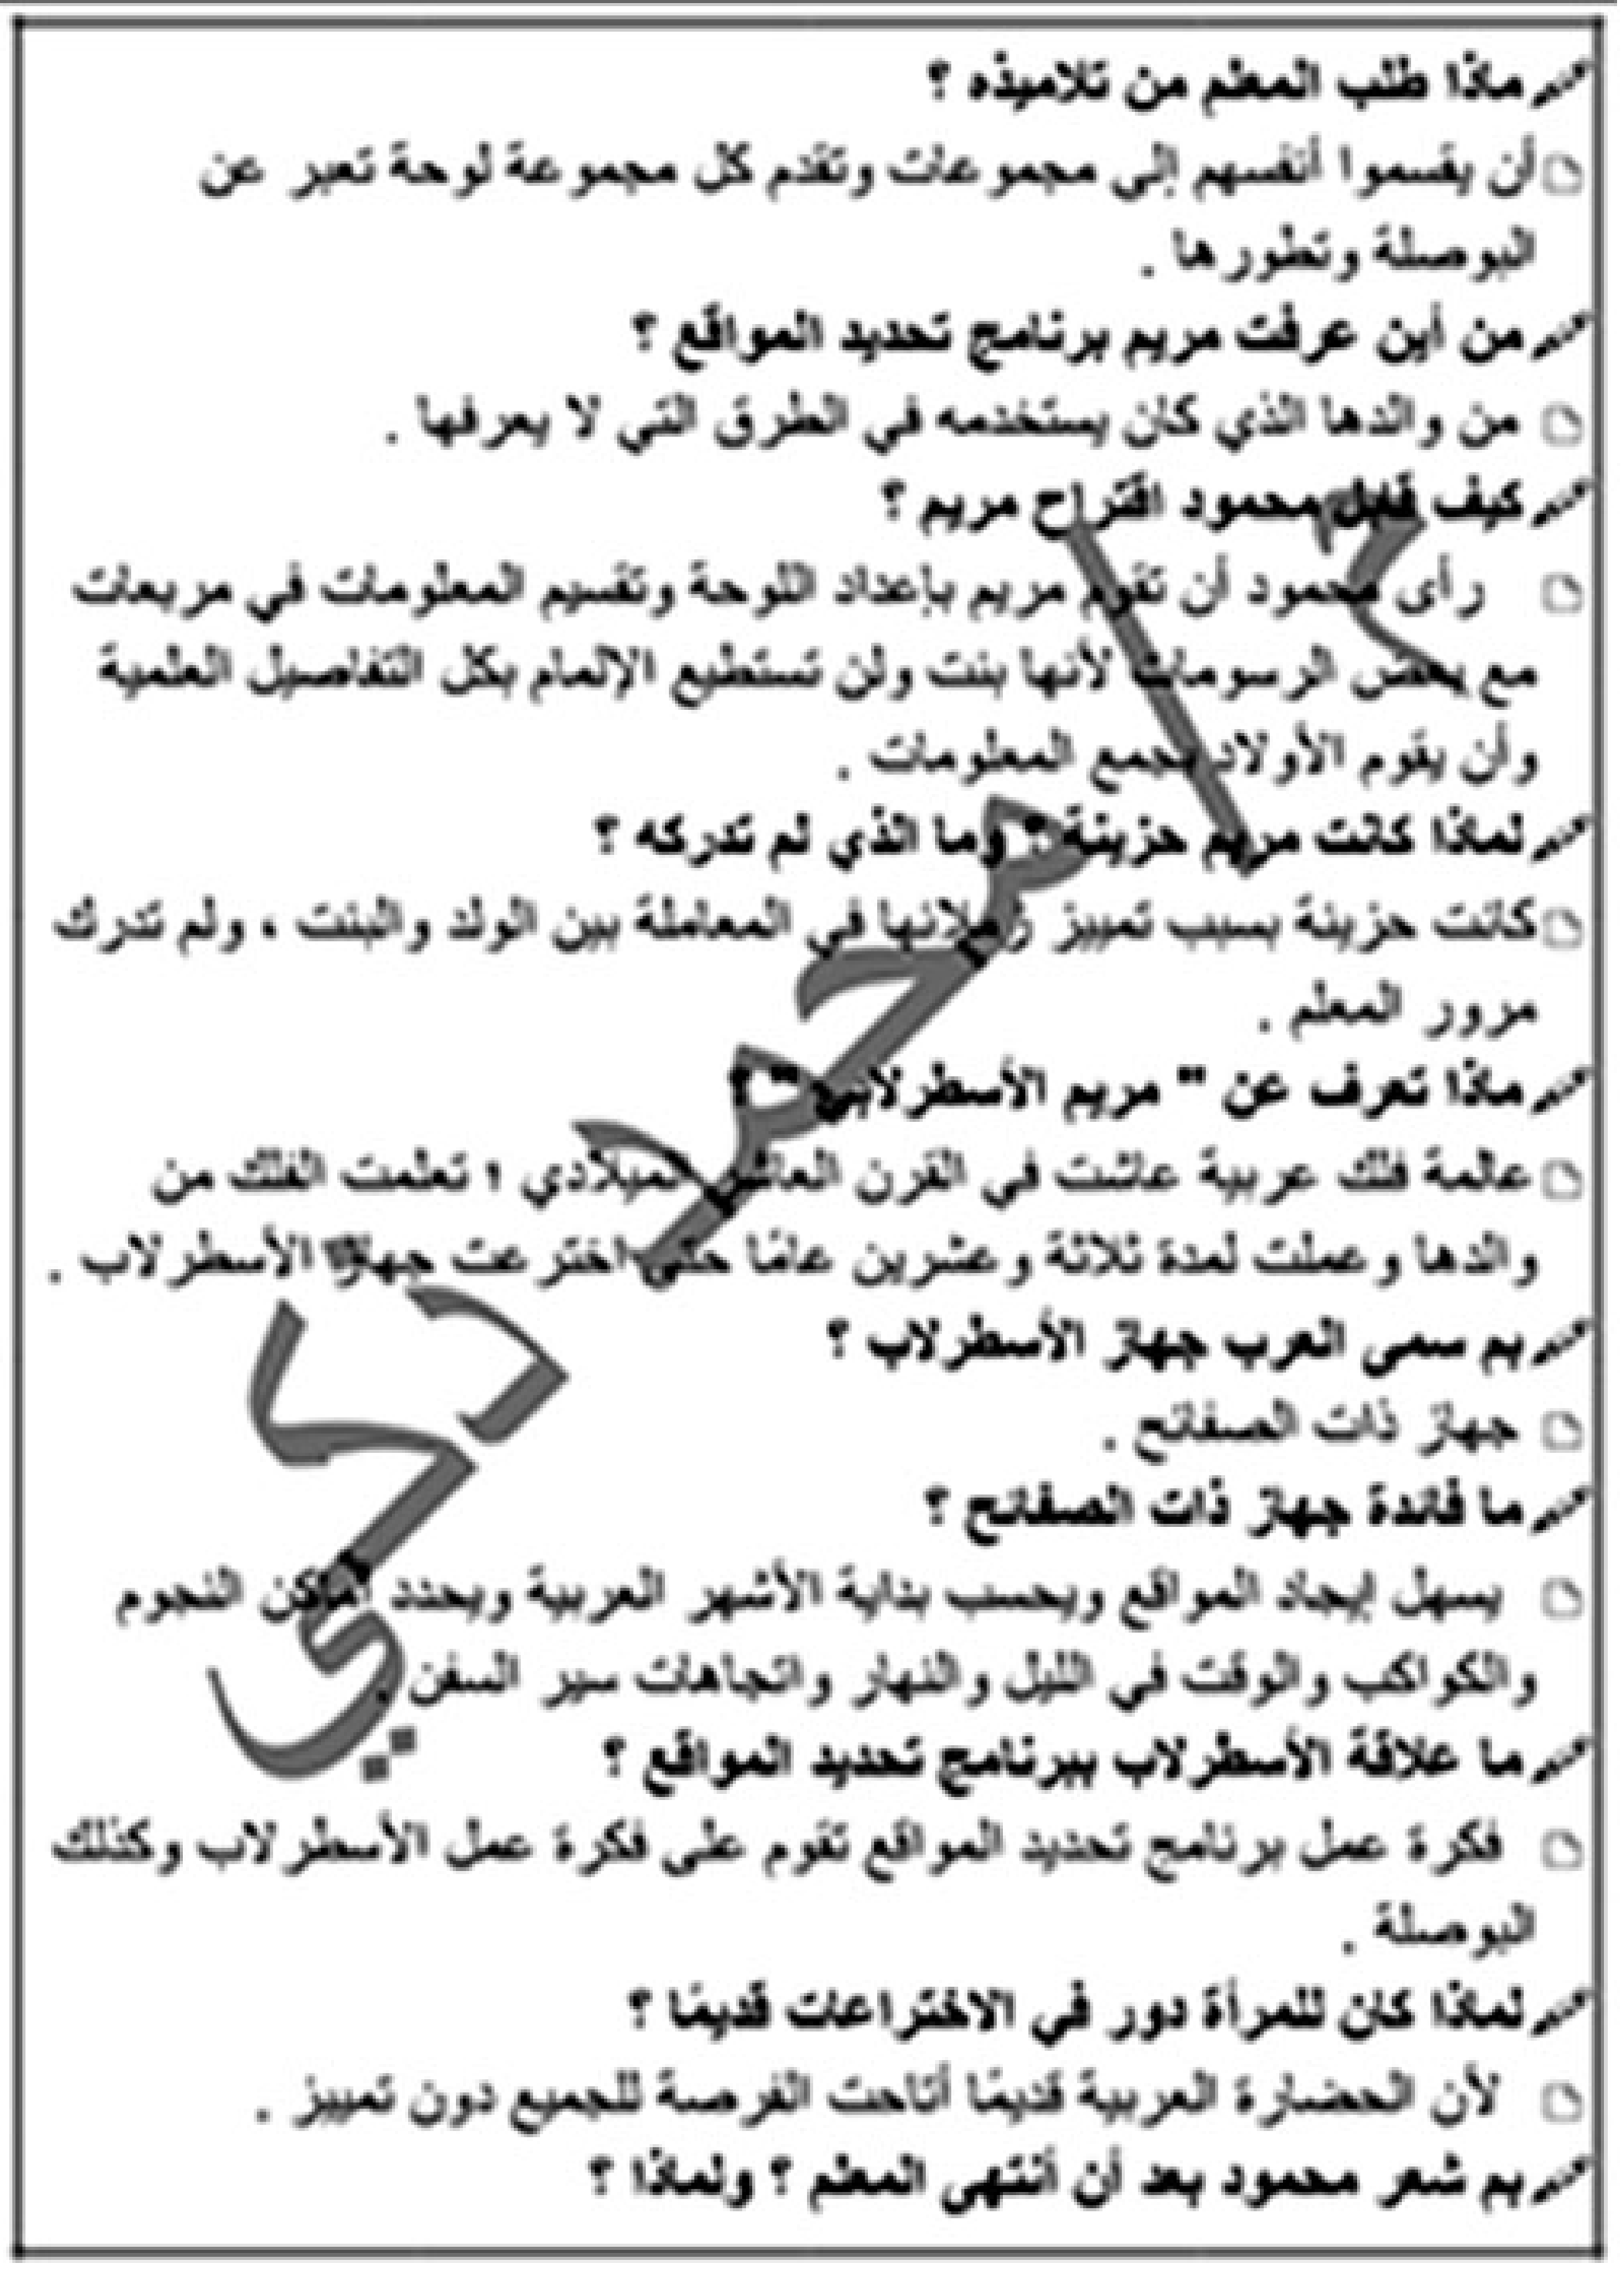 ماذا طلب المعلم من تلاميذه ؟
أن يقسموا أنفسهم إلي مجموعات وتقدم كل مجموعة لوحة تعبر عن
البوصلة وتطورها .
من أين عرفت مريم برنامج تحديد المواقع ؟
من والدها الذي كان يستخدمه في الطرق التي لا يعرفها .
كيف قابل محمود اقتراح مريم ؟
رأى محمود أن تقوم مريم بإعداد اللوحة وتقسيم المعلومات في مربعات
مع بعض الرسومات لأنها بنت ولن تستطيع الإلمام بكل التفاصيل العلمية
وأن يقوم الأولاد بجمع المعلومات .
لماذا كانت مريم حزينة ؟ وما الذي لم تدركه ؟
كانت حزينة بسبب تمييز زملائها في المعاملة بين الولد والبنت ، ولم تدرك
مرور المعلم .
ماذا تعرف عن " مريم الأسطرلابي " ؟
عالمة فلك عربية عاشت في القرن العاشر الميلادي ؛ تعلمت الفلك من
والدها وعملت لمدة ثلاثة وعشرين عامًا حتى اخترعت جهاز الأسطرلاب .
بم سمي العرب جهاز الأسطرلاب ؟
جهاز ذات الصفائح .
ما فائدة جهاز ذات الصفائح ؟
يسهل إيجاد المواقع ويحسب بداية الأشهر العربية ويحدد أماكن النجوم
والكواكب والوقت في الليل والنهار واتجاهات سير السفن .
ما علاقة الأسطرلاب ببرنامج تحديد المواقع ؟
فكرة عمل برنامج تحديد المواقع تقوم على فكرة عمل الأسطرلاب وكذلك
البوصلة .
لماذا كان للمرأة دور في الاختراعات قديمًا ؟
لأن الحضارة العربية قديمًا أتاحت الفرصة للجميع دون تمييز .
بم شعر محمود بعد أن أنتهى المعلم ؟ ولماذا ؟